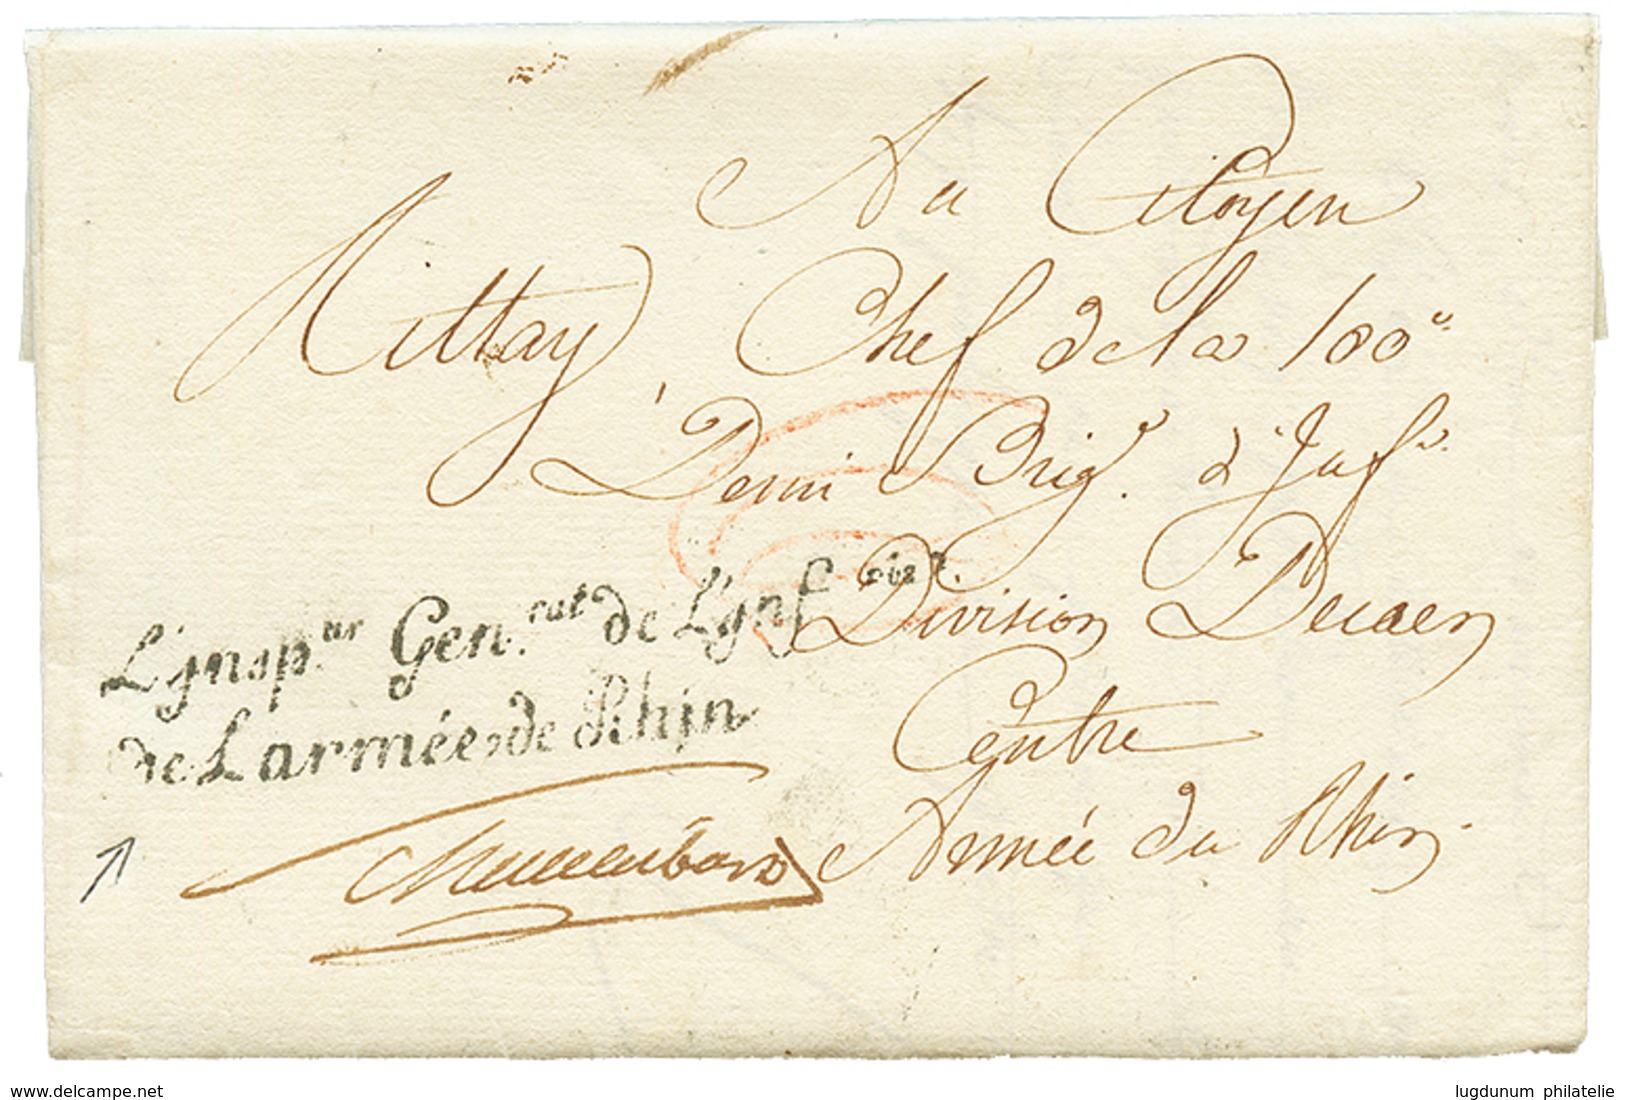 Au Citoyen
Rittay Chef de la 100e
Demi Brig.e d'Inf.ie
Division Decaen
Centre
Armée du Rhin
L'jnsp.ur Gen.ral de L'jnf
de Larmée de Rhin
www.delcampe.net
lugdunum philatelie